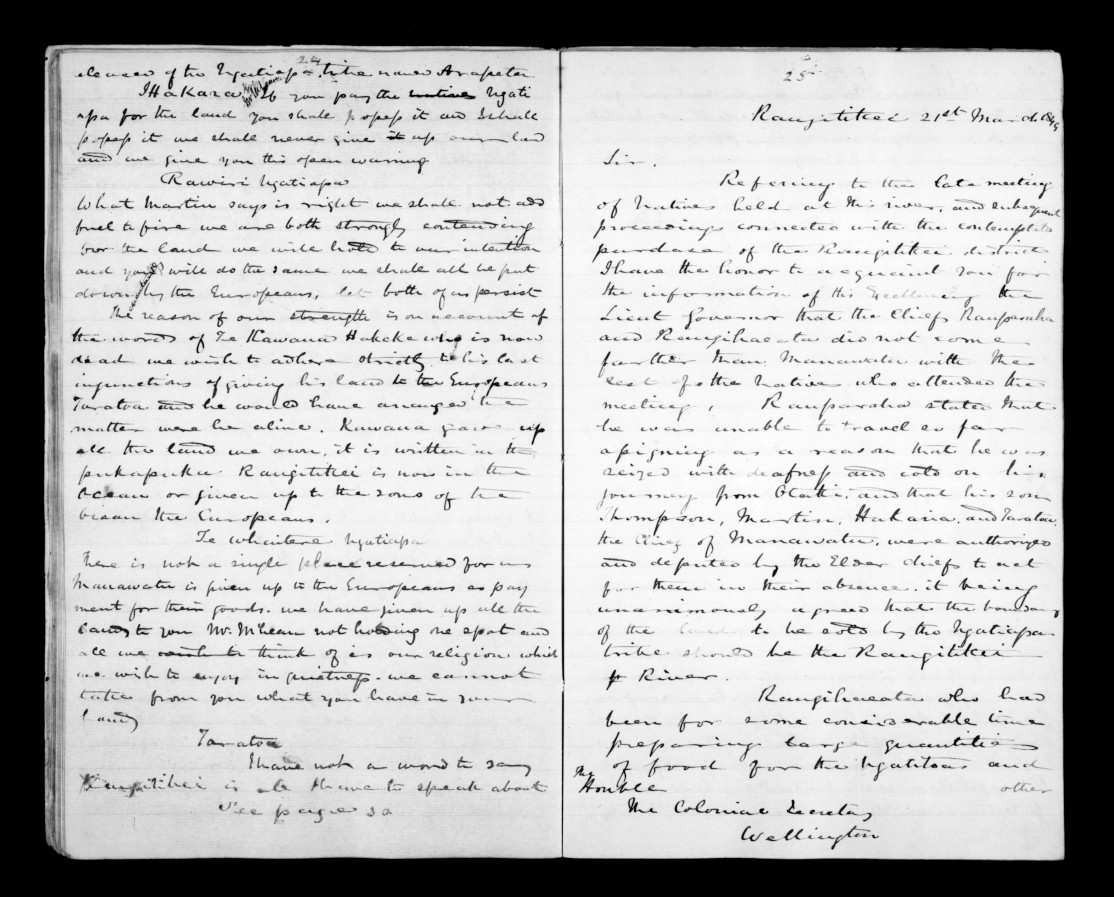 24
deceased of the Ngatiapa tribe named Arapeta
Ihakara If you pay the native Ngati
apa for the land you shall posess it and I shall
posess it we shall never give it up our land
and we give you this open warning
Rawiri Ngatiapa
What Martin says is right we shall not add
fuel to fire we are both strongly contending
for the land we will hold to our intention
and you will do the same we shall all be put
down by the Europeans, let both of us persist
The reason of our strength is on account of
the words of Te Kawana Hakeke who is now
dead we wish to adhere strictly to his last
injunctions of giving his land to the Europeans
Taratoa and he would have arranged the
matter were he alive. Kawana gave up
all the land we own, it is written in the
pukapuka Rangitikei is now in the
Ocean or given up to the sons of the
ocean the Europeans.
Te Whaitere Ngatiapa
There is not a single place reserved for us
Manawatu is given up to the Europeans as pay
ment for their goods. we have given up all the
land to you Mr. McLean not holding one spot and
all we wish to think of is our religion which
we wish to enjoy in quietness. we cannot
take from you what you have in your
hand
Taratoa
I have not a word to say
Rangitikei is all I have to speak about
See page 30
25
Rangitikei 21st March 1849
Sir.
Refering to the late meeting
of Natives held at this river, and subsequent
proceedings connected with the contemplated
purchase of the Rangitikei district
I have the honor to acquaint you for
the information of His Excellency the
Lieut Governor that the Chiefs Rauparaha
and Rangihaeata did not come
farther than Manawatu with the
rest of the Natives who attended the
meeting, Rauparaha stated that
he was unable to travel so far
asigning as a reason that he was
seized with deafness and cold on his
journey from Otaki, and that his son
Thompson, Martin, Hakaria, and Taratoa,
the Chief of Manawatu, were authorized
and deputed by the Elder chiefs to act
for them in their absence. it being
unanimously agreed that the boundary
of the land to be sold by the Ngatiapa
tribe should be the Rangitikei
River.
Rangihaeata who had
been for some considerable time
preparing large quantities
of food for the Ngatitoas and
The
Honble other
The Colonial Secretary
Wellington